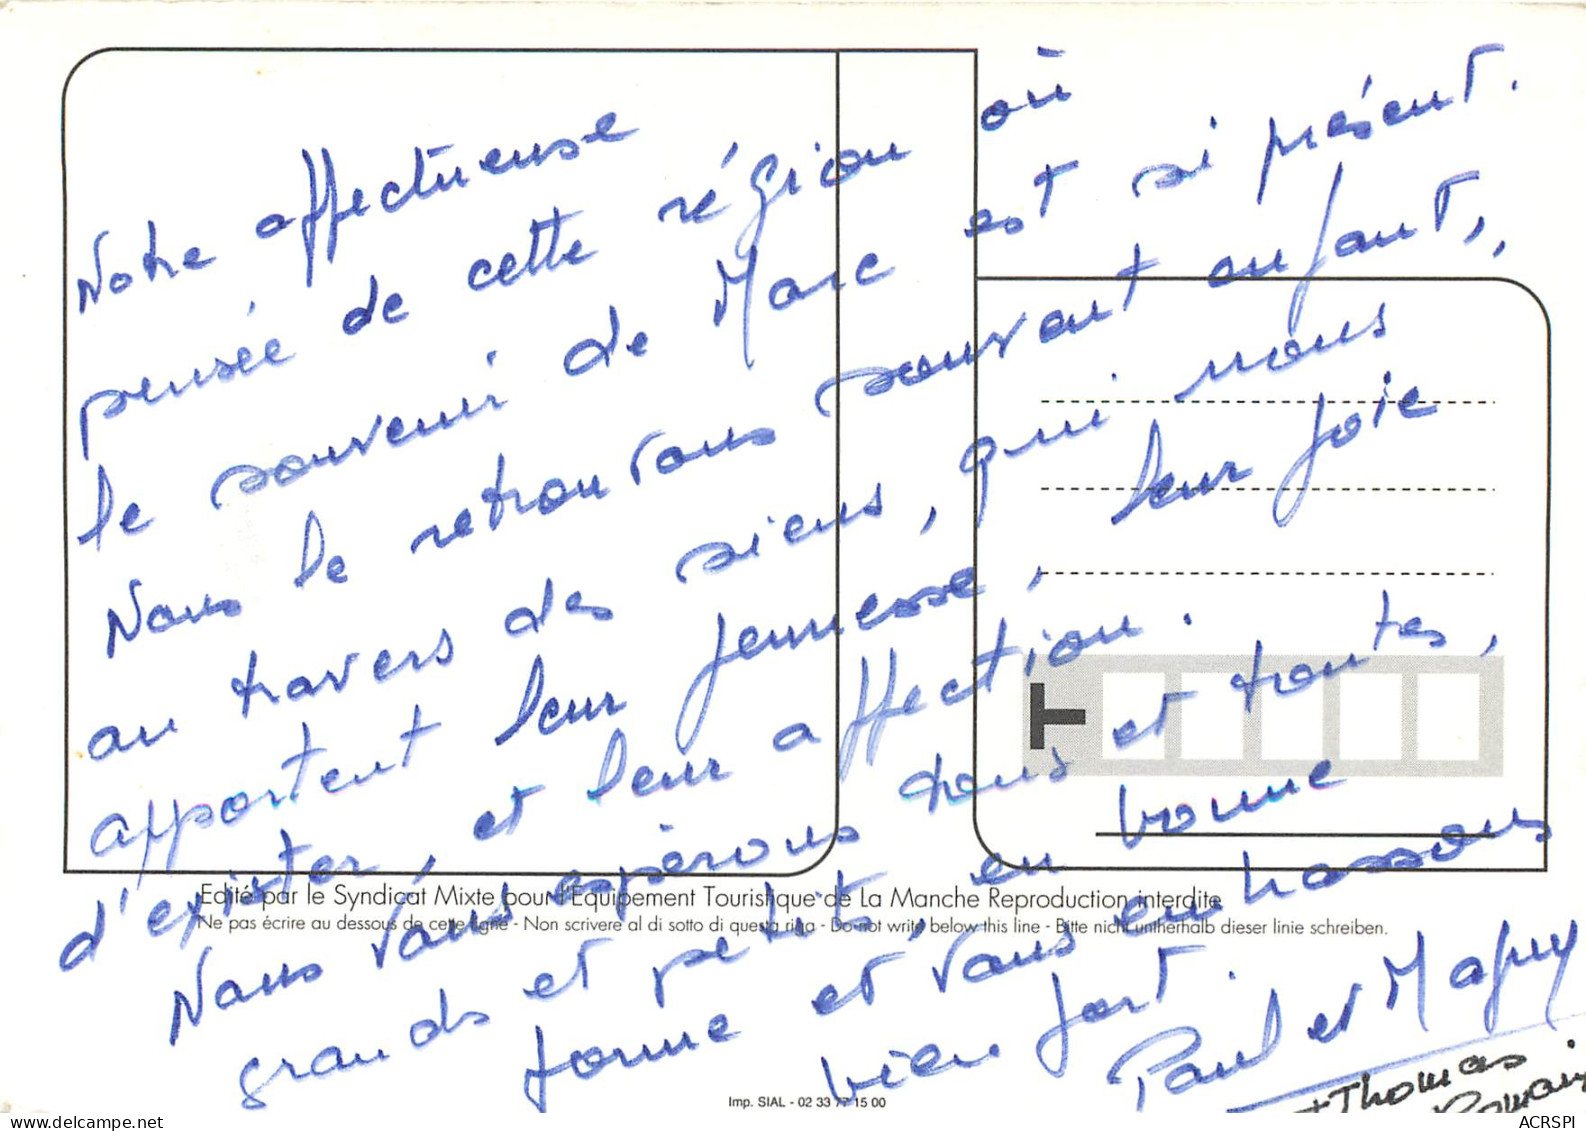 Notre affectueuse
pensée de cette région où
le souvenir de Marc est si présent.
Nous le retrouvons souvent enfant,
au travers des siens, qui nous
apportent leur jeunesse, leur joie
d'exister, et leur affection.
Nous vous espérons tous et toutes,
grands et petits, en bonne
forme et vous embrassons
bien fort.
Paul et Maguy
+ Thomas
Romain
T
Edité par le Syndicat Mixte pour l'Equipement Touristique de La Manche Reproduction interdite
Ne pas écrire au dessous de cette ligne - Non scrivere al di sotto di questa riga - Do not write below this line - Bitte nicht untherhalb dieser linie schreiben.
Imp. SIAL - 02 33 77 15 00
ACRSPI